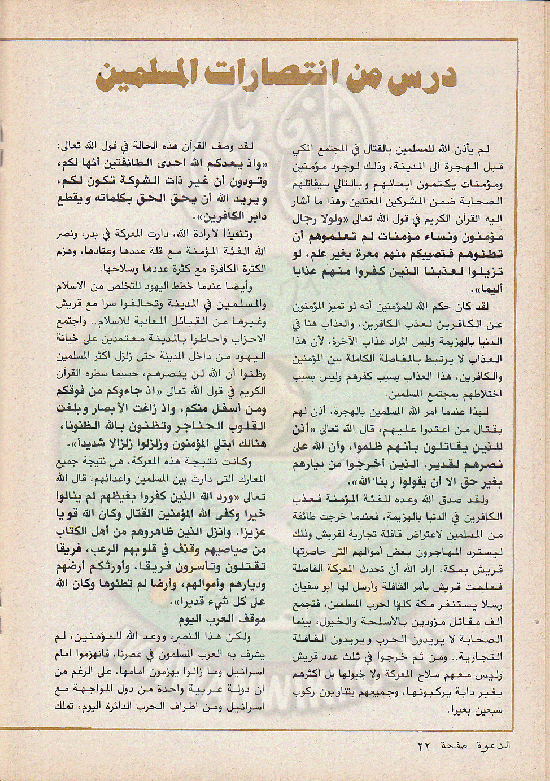 درس من انتصارات المسلمين
لم يأذن الله للمسلمين بالقتال في المجتمع المكي
قبل الهجرة الى المدينة، وذلك لوجود مؤمنين
ومؤمنات يكتمون ايمانهم وبالتالي سيقاتلهم
الصحابة ضمن المشركين المعتدين وهذا ما أشار
اليه القرآن الكريم في قول الله تعالى «ولولا رجال
مؤمنون ونساء مؤمنات لم تعلموهم أن
تطئوهم فتصيبكم منهم معرة بغير علم، لو
تزيلوا لعذبنا الذين كفروا منهم عذابا
أليما».
لقد كان حكم الله للمؤمنين أنه لو تميز المؤمنون
عن الكافرين لعذب الكافرين، والعذاب هنا في
الدنيا بالهزيمة وليس المراد عذاب الآخرة، لأن هذا
العذاب لا يرتبط بالمفاصلة الكاملة بين المؤمنين
والكافرين، هذا العذاب بسبب كفرهم وليس بسبب
اختلاطهم بمجتمع المسلمين.
لهذا عندما أمر الله المسلمين بالهجرة، أذن لهم
بقتال من اعتدوا عليهم، قال الله تعالى «أذن
للذين يقاتلون بأنهم ظلموا، وأن الله على
نصرهم لقدير، الذين أخرجوا من ديارهم
بغير حق الا أن يقولوا ربنا الله».
ولقد صدق الله وعده للفئة المؤمنة فعذب
الكافرين في الدنيا بالهزيمة، فعندما خرجت طائفة
من المسلمين لاعتراض قافلة تجارية لقريش وذلك
ليسترد المهاجرون بعض أموالهم التي حاصرتها
قريش بمكة، أراد الله أن تحدث المعركة الفاصلة
فعلمت قريش بأمر القافلة وأرسل لها ابو سفيان
رسلا يستنفر مكة كلها لحرب المسلمين، فتجمع
ألف مقاتل مزودين بالأسلحة والخيول، بينما
الصحابة لا يريدون الحرب ويريدون القافلة
التجارية.. ومن ثم خرجوا في ثلث عدد قريش
وليس معهم سلاح المعركة ولا خيولها بل أكثرهم
بغير دابة يركبونها، وجميعهم يتناوبون ركوب
سبعين بعيرا.
لقد وصف القرآن هذه الحالة في قول الله تعالى:
«واذ يعدكم الله احدى الطائفتين أنها لكم،
وتودون أن غير ذات الشوكة تكون لكم،
ويريد الله أن يحق الحق بكلماته ويقطع
دابر الكافرين».
وتنفيذا لارادة الله، دارت المعركة في بدر، ونصر
الله الفئة المؤمنة مع قلة عددها وعتادها، وهزم
الكثرة الكافرة مع كثرة عددها وسلاحها.
وأيضا عندما خطط اليهود للتخلص من الاسلام
والمسلمين في المدينة وتحالفوا سرا مع قريش
وغيرها من القبائل المعادية للاسلام.. واجتمع
الاحزاب واحاطوا بالمدينة معتمدين على خيانة
اليهود من داخل المدينة حتى زلزل اكثر المسلمين
وظنوا أن الله لن ينصرهم، حسبما سطره القرآن
الكريم في قول الله تعالى «اذ جاءوكم من فوقكم
ومن أسفل منكم، واذ زاغت الأبصار وبلغت
القلوب الحناجر وتظنون بالله الظنونا،
هنالك ابتلي المؤمنون وزلزلوا زلزالا شديدا».
وكانت نتيجة هذه المعركة، هي نتيجة جميع
المعارك التي دارت بين المسلمين واعدائهم، قال الله
تعالى «ورد الله الذين كفروا بغيظهم لم ينالوا
خيرا وكفى الله المؤمنين القتال وكان الله قويا
عزيزا. وانزل الذين ظاهروهم من أهل الكتاب
من صياصيهم وقذف في قلوبهم الرعب، فريقا
تقتلون وتأسرون فريقا، وأورثكم أرضهم
وديارهم وأموالهم، وأرضا لم تطئوها وكان الله
على كل شيء قديرا».
موقف العرب اليوم
ولكن هذا النصر، ووعد الله للمؤمنين، لم
يعترف به العرب المسلمون في عصرنا، فانهزموا امام
اسرائيل وما زالوا يهزمون أمامها، على الرغم من
أن دولة عربية واحدة من دول المواجهة مع
اسرائيل ومن أطراف الحرب الدائرة اليوم، تملك
الدعوة صفحة ٢٢